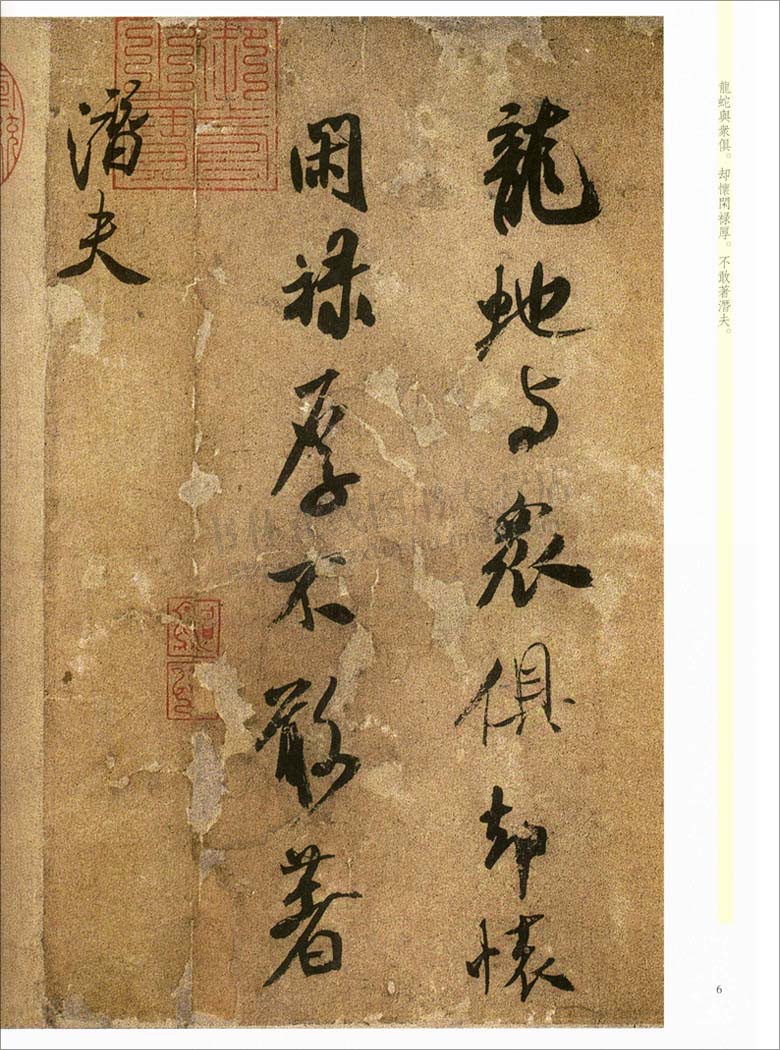 龍虵与衆俱却懷
閑祿厚不敢著
潛夫
龍蛇與衆俱。却懷閑禄厚。不敢著潛夫。
6